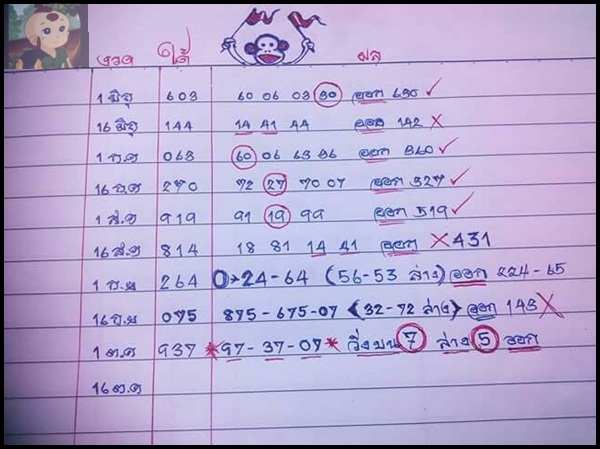 งวด ได้ ผล
1 มิถุ 603 60 06 03 30 ออก 630 ✓
16 มิถุ 144 14 41 44 ออก 142 X
1 ก.ค 063 60 06 63 36 ออก 360 ✓
16 ก.ค 270 72 27 70 07 ออก 327 ✓
1 ส.ค 919 91 19 99 ออก 519 ✓
16 ส.ค 814 18 81 14 41 ออก X 431
1 ก.ย 264 0→24-64 (56-53 ล่าง) ออก 224-65
16 ก.ย 075 875-675-07 (32-72 ล่าง) ออก 143 X
1 ต.ค 937 *97-37-07* วิ่งบน 7 ล่าง 5 ออก
16 ต.ค